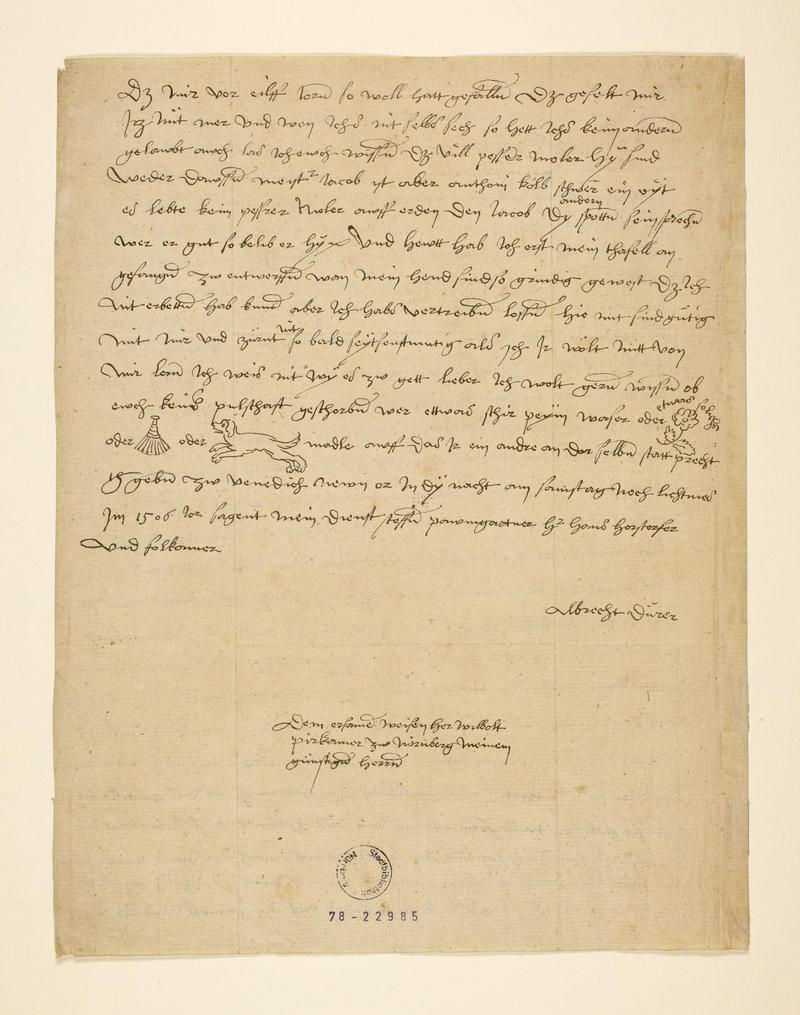 Dz mir vor eilff Jorn so woll hatt gefalln Dz gefelt mir
Jtz nüt mer Vnd wen Jchs nit selbs sech so hett Jchs keim andern
gelawbt awch las Jch ewch wissn Dz vill pesser moler hy sind
weder Dawssn meistr Jacob ist aber anthoni kolb schwer ein eyt
andern
es lebte kein pessrer moler awff erden Den Jacob Dy spottn sein sprechn
wer er gut so belib er hy Vnd hewtt hab Jch erst mein thafell an
gefangn zw entwerffn wan mein hend sind so grindig gewest Dz Jch
nit erbettn hab kunn aber Jch habs vertreibn lossn hie mit sind gütig
nüt
mit mir vnd zürnt so bald seyt senftmütig als Jch Jr wölt nitt von
mir lern Jch weis nit wy es zw gett lieber Jch wolt gern wissn ob
ewch keins pulschaft gestorbn wer ettwas schir peym waser oder etwas so
oder oder madle awff das Jr ein andre an der selbn statt precht
gebn zw venedich newn or Jn Dy nacht am samstag noch lichtmes
Jm 1506 Jor sagent mein Dienst steffn pawmgartner hr hans horstorfer
Vnd folkamer
Albrecht Dürer
Dem ersamen weisen her wilbolt
pirkamer zw Nörnberg meinem
günstign herrn
Stadtbibliothek Nürnberg
78-22985